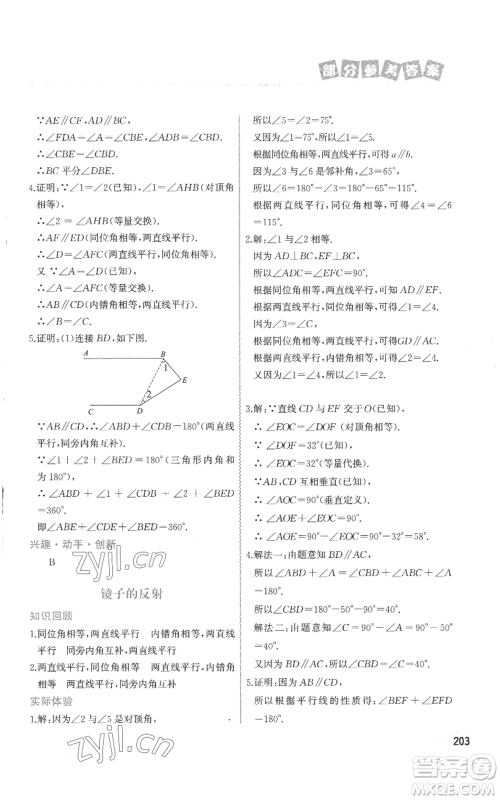 部分参考答案
∵AE∥CF,AD∥BC,
∴∠FDA=∠A=∠CBE.
∴∠CBE=∠CBD.
∴BC平分∠DBE.
4.证明:∵∠1=∠2(已知),∠1=∠AHB(对顶角
相等),
∴∠2=∠AHB(等量交换).
∴AF∥ED(同位角相等,两直线平行).
∴∠D=∠AFC(两直线平行,同位角相等).
又∵∠A=∠D(已知),
∴∠A=∠AFC(等量交换).
∴AB∥CD(内错角相等,两直线平行).
∴∠B=∠C.
5.证明:(1)连接BD,如下图.
A B
1
E
2
C D
∵AB∥CD,∴∠ABD+∠CDB=180°(两直线
平行,同旁内角互补).
∵∠1+∠2+∠BED=180°(三角形内角和
为180°),
∴∠ABD+∠CDB+∠1+∠2+∠BED
=360°.
即∠ABE+∠CDE+∠BED=360°.
兴趣·动手·创新
B
镜子的反射
知识回顾
1.同位角相等,两直线平行 内错角相等,两直线
平行 同旁内角互补,两直线平行
2.两直线平行,同位角相等 两直线平行,内错角
相等 两直线平行,同旁内角互补
实际体验
1.解:因为∠2与∠5是对顶角,
所以∠5=∠2=75°.
又因为∠1=∠2=75°,
所以∠1=∠5.
根据同位角相等,两直线平行可得a∥b.
因为∠3与∠6是邻补角,∠3=65°,
所以∠6=115°.
根据两直线平行,同位角相等,可得∠4=∠6
=115°.
2.解:∠1与∠2相等.
因为AD⊥BC,EF⊥BC,
所以∠ADC=∠EFC=90°.
根据同位角相等,两直线平行,可得AD∥EF.
根据两直线平行,同位角相等,可得∠2=∠3.
又因为∠3=∠C,
所以∠2=∠C.
根据同位角相等,两直线平行,可得GD∥AC.
根据两直线平行,内错角相等,可得∠1=∠3.
所以∠1=∠2.
3.解:∵直线CD与EF交于O(已知),
∴∠EOC=∠DOF(对顶角相等).
∵∠DOF=32°(已知),
∴∠EOC=32°(等量代换).
∵AB,CD互相垂直(已知),
∴∠AOC=90°(垂直定义).
∴∠AOE=∠AOC-∠EOC=90°-32°=58°.
4.解法一:由题意知BD∥AC,
所以∠EAC=∠ABD=60°,∠ACB+∠CBD
=180°.
所以∠ACB=180°-∠CBD=40°.
解法二:由题意知BD∥AC,
所以∠ACB+∠CBD=180°.
又因为∠CBD=140°,
所以∠ACB=180°-∠CBD=180°-140°
=40°.
5.证明:因为∠1=∠2,
所以AB∥EF.
所以根据平行线的性质,∠BEF+∠EFD
=180°.
zyjl.cn
zyjl.cn
答案圈
MXQE.COM
203